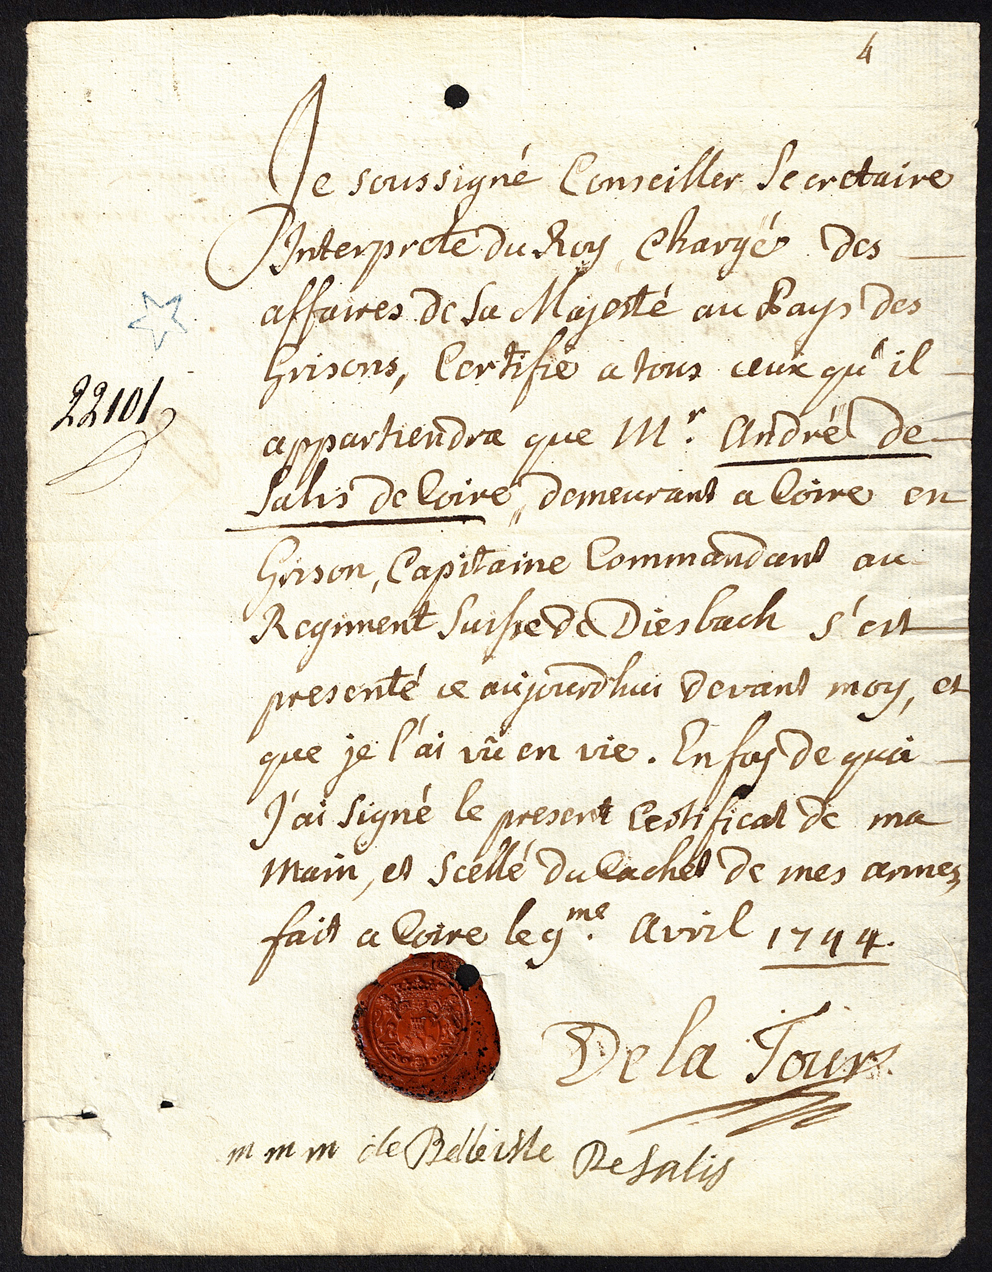 4
Je soussigné Conseiller Secretaire
Interprete du Roy Chargé des
affaires de Sa Majesté au Pays des
Grisons, Certifie a tous ceux qu'il
22101
appartiendra que Mr. André de
Salis de Coire, demeurant a Coire en
Grison, Capitaine Commandant au
Regiment Suisse de Diesbach s'est
presenté ce aujourdhui devant moy, et
que je l'ai vû en vie. En foy de quoi
J'ai Signé le present Certificat de ma
Main, et Scellé du Cachet de mes armes,
fait a Coire le 9me. Avril 1744.
De la Tour
m m m de Belleisle De Salis